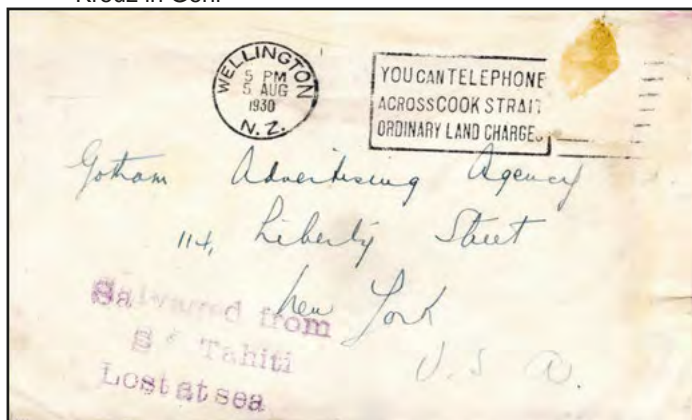 WELLINGTON
5 PM
5 AUG
1930
N.Z.
YOU CAN TELEPHONE
ACROSS COOK STRAIT
ORDINARY LAND CHARGES
Gotham Advertising Agency
114, Liberty Street
New York
U.S.A.
Salvaged from
SS Tahiti
Lost at sea